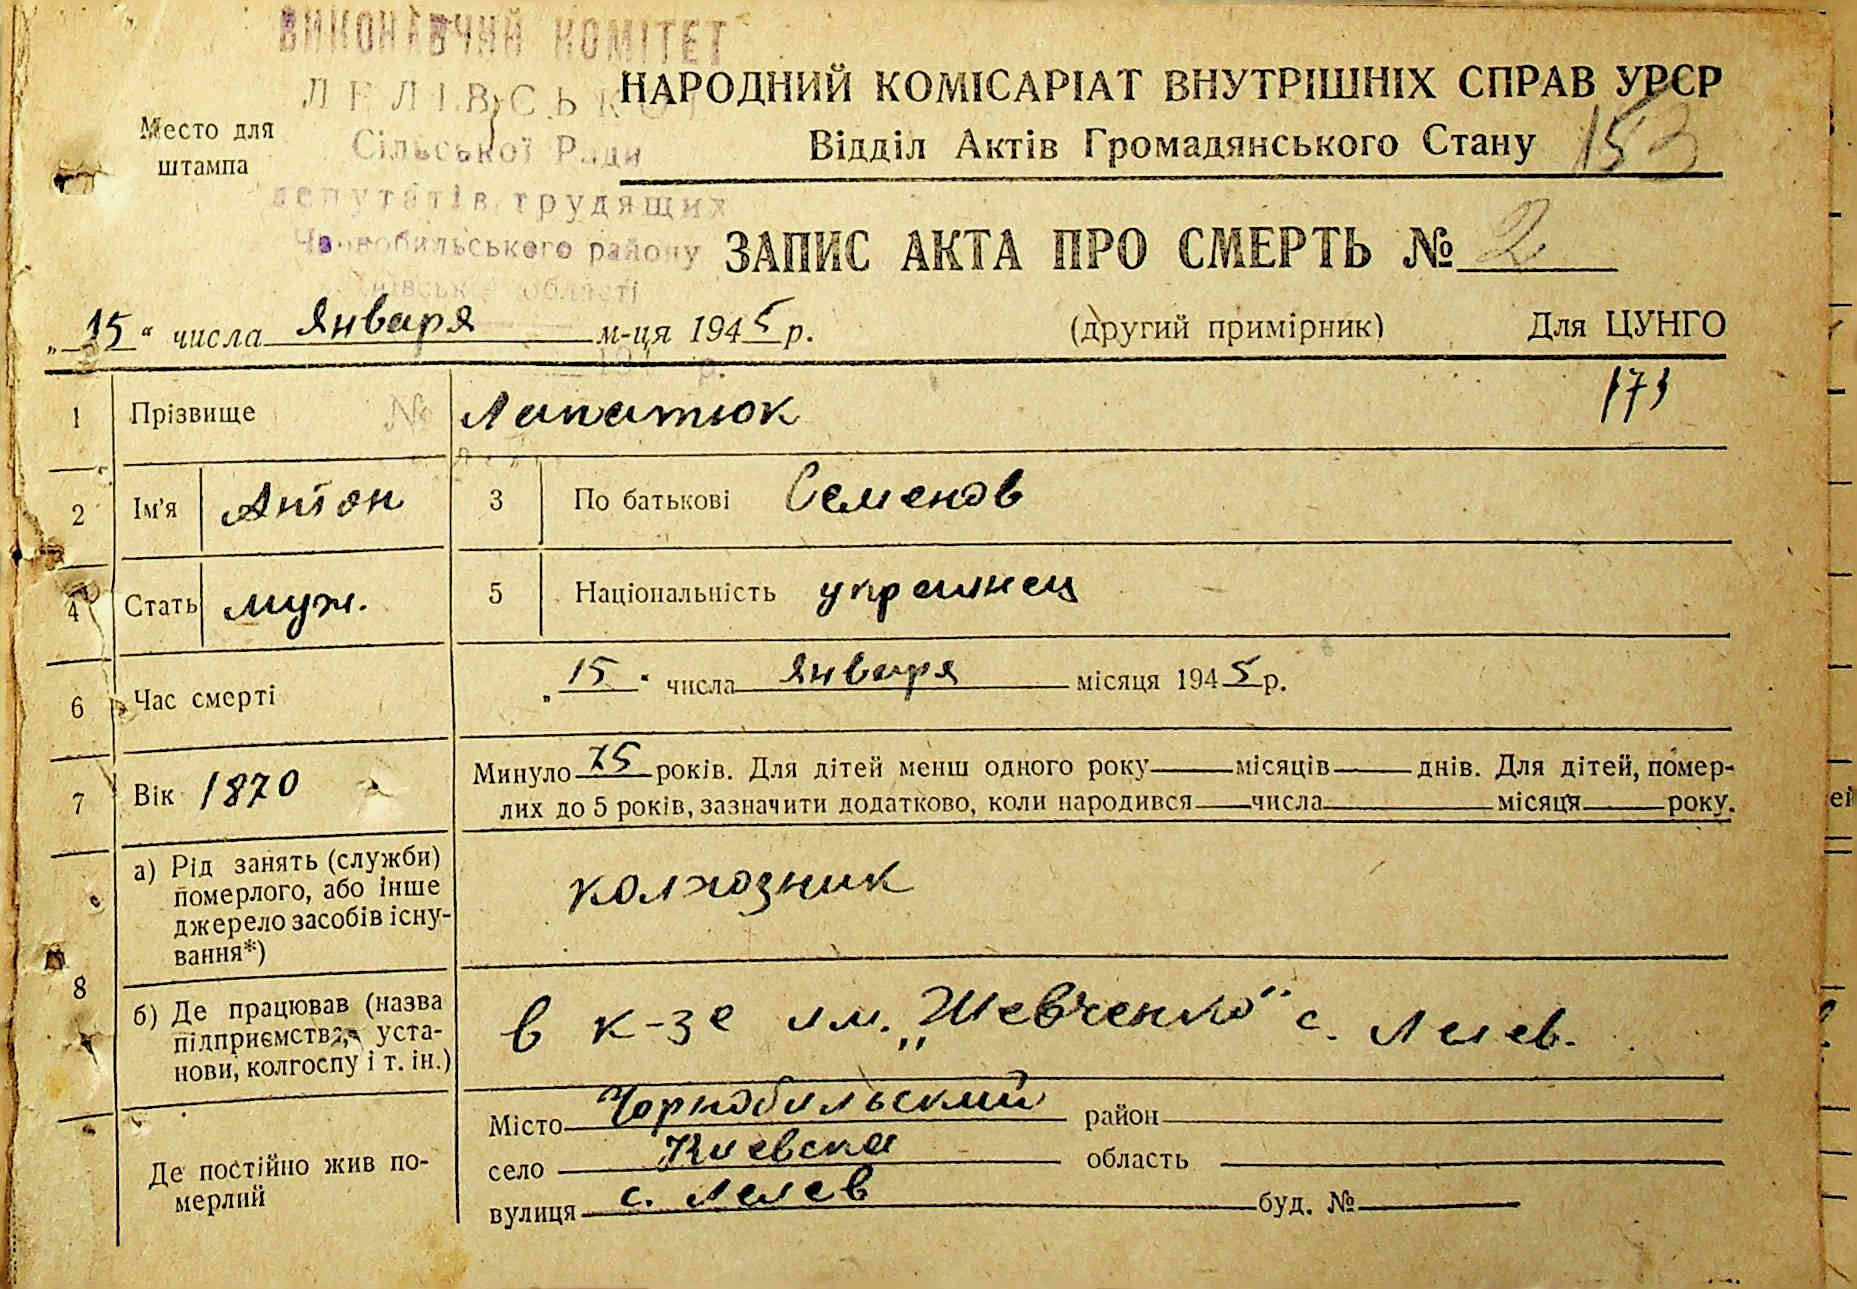 ВИКОНАВЧИЙ КОМІТЕТ
ЛЕЛІВСЬКОЇ
Сільської Ради
депутатів трудящих
Чорнобильського району
області
Место для
штампа
НАРОДНИЙ КОМІСАРІАТ ВНУТРІШНІХ СПРАВ УРСР
Відділ Актів Громадянського Стану 153
ЗАПИС АКТА ПРО СМЕРТЬ № 2
„15“ числа Января м-ця 1945 р. (другий примірник) Для ЦУНГО
173
1 Прізвище Лапатюк
2 Ім'я Антон 3 По батькові Семенов
4 Стать муж. 5 Національність украинец
6 Час смерті „15“ числа Января місяця 1945 р.
7 Вік 1870 Минуло 75 років. Для дітей менш одного року місяців днів. Для дітей, помер-
лих до 5 років, зазначити додатково, коли народився числа місяця року.
8 а) Рід занять (служби)
померлого, або інше
джерело засобів існу-
вання*)
колхозник
б) Де працював (назва
підприємства, уста-
нови, колгоспу і т. ін.)
в к-зе им. „Шевченко“ с. Лелев.
Де постійно жив по-
мерлий
Місто Чорнобильский район
село Киевска область
вулиця с. Лелев буд. №